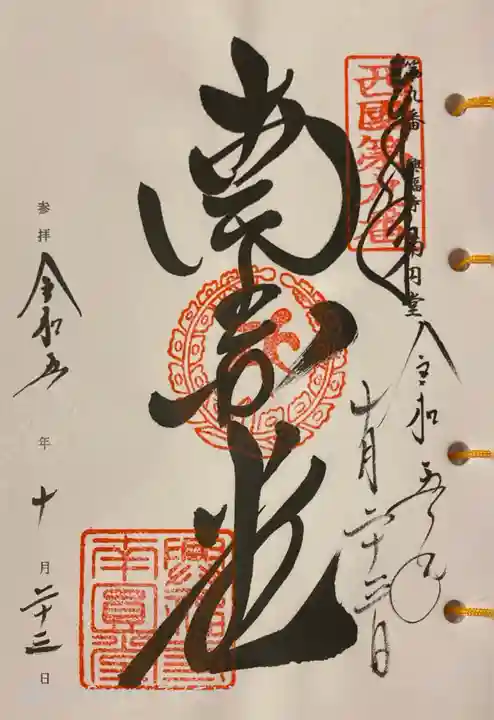 奉拝
第九番 興福寺南円堂
西國第九番
令和五年
十月二十三日
南円堂
興福寺
南圓堂
参拝 令和五年十月二十三日